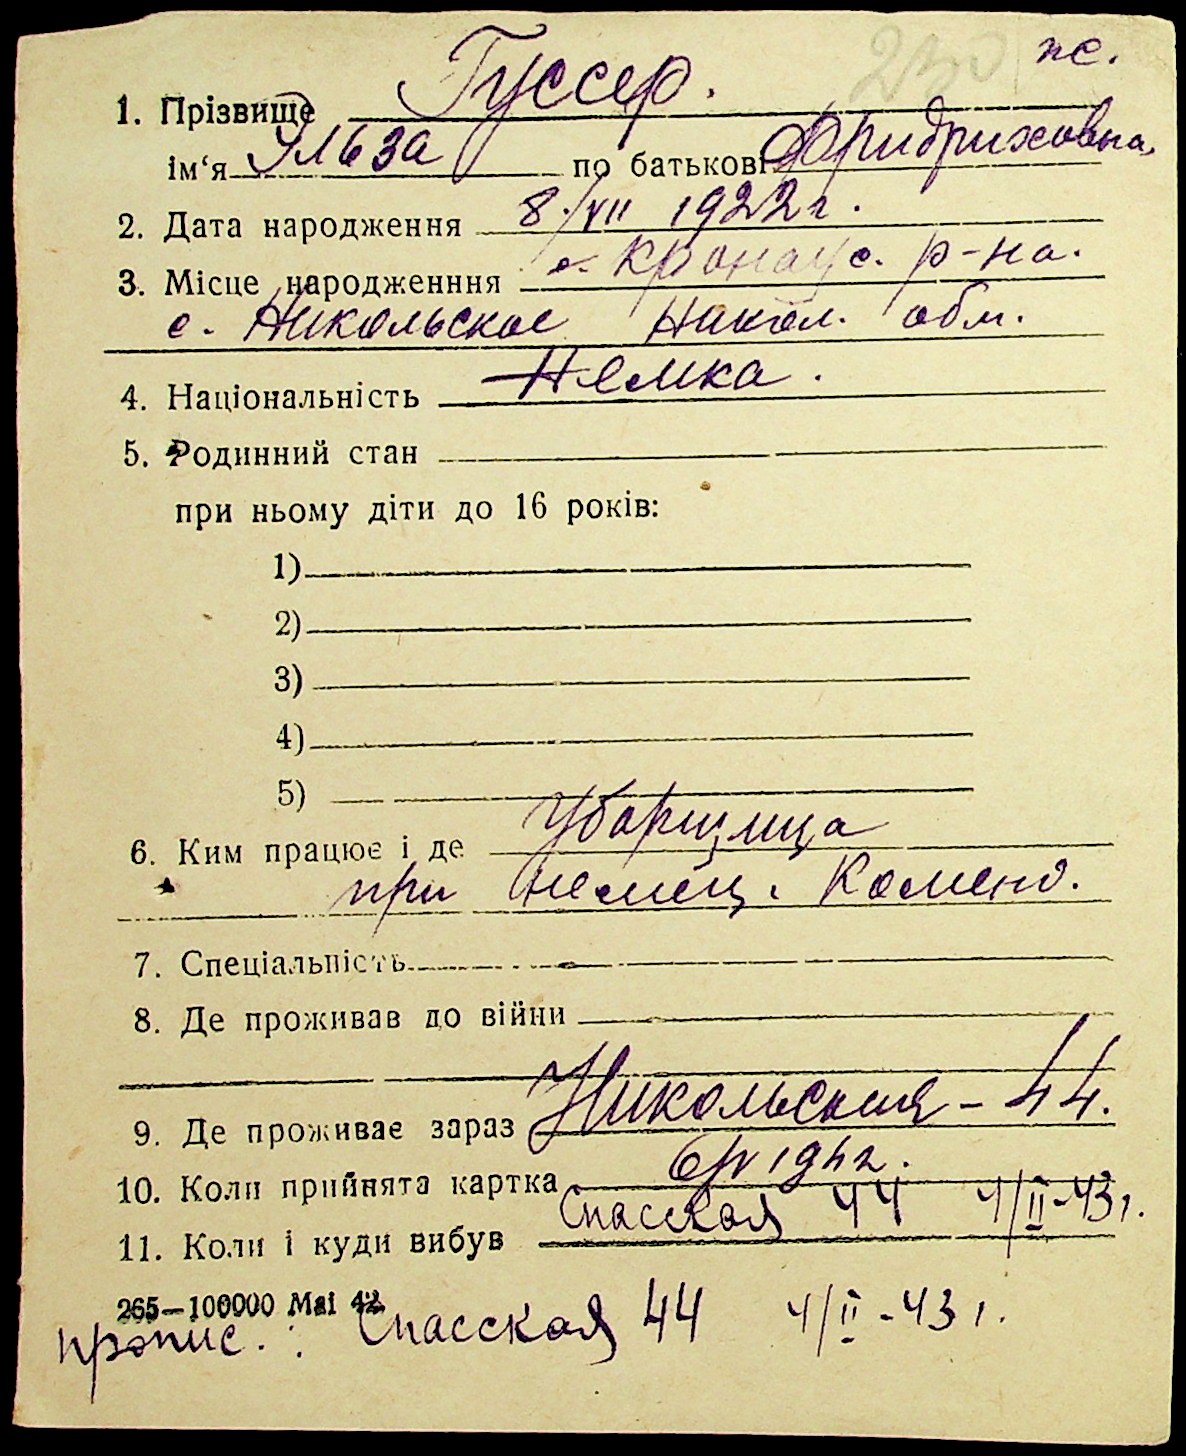 пс.
1. Прізвище Гуссер.
ім‘я Ульза по батькові Фридриховна
2. Дата народження 8/VII 1922 г.
3. Місце народженння с. Кронаус. р-на.
с. Никольское Никол. обл.
4. Національність Немка.
5. Родинний стан
при ньому діти до 16 років:
1)
2)
3)
4)
5)
6. Ким працює і де Уборщица
при немец. Коменд.
7. Спеціальність
8. Де проживав до війни
9. Де проживає зараз Никольская - 44.
10. Коли прийнята картка
Спасская 44 4/II-43 г.
11. Коли і куди вибув
265—100000 Mai 42
пропис.: Спасская 44 4/II-43 г.